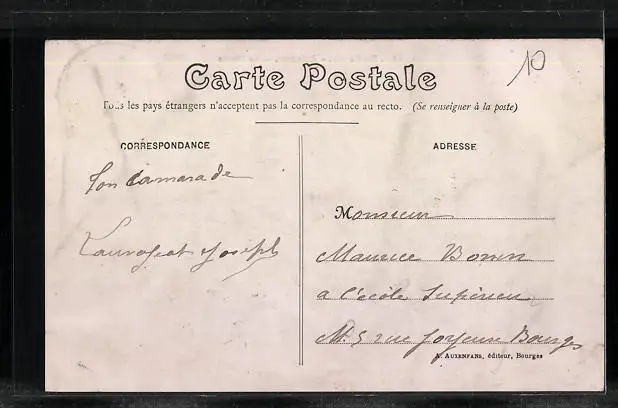 10
Carte Postale
Tous les pays étrangers n'acceptent pas la correspondance au recto. (Se renseigner à la poste)
CORRESPONDANCE
ADRESSE
Ton camarade
Joseph
Monsieur
Maurice Bonin
a l'école Supérieur
5 rue Joyeuse Bourges
A. AUXENFANS, éditeur, Bourges